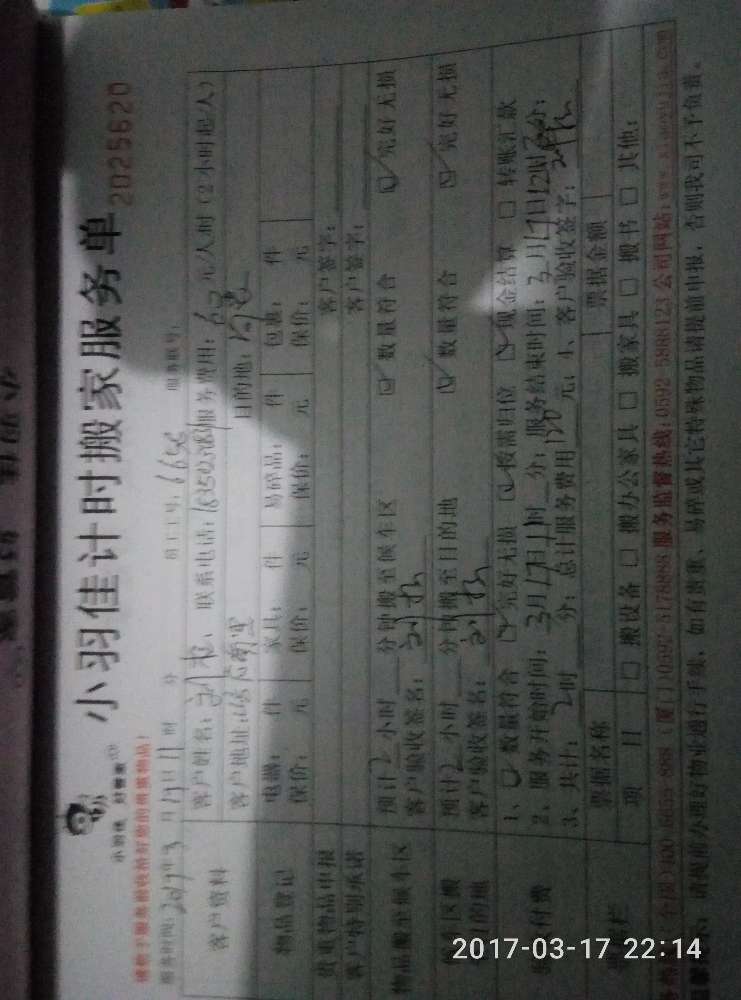 小羽佳计时搬家服务单
2025620
小羽佳 好管家
请您于服务前收拾好您的贵重物品!
服务时间: 2017年3月17日11时 分 员工工号: 6656 服务账号:
客户资料
客户姓名: 联系电话: 服务费用: 60元/人时(2小时起/人)
客户地址: 目的地:
物品登记
电器: 件 家具: 件 易碎品: 件 包裹: 件
保价: 元 保价: 元 保价: 元 保价: 元
贵重物品申报 客户签字:
客户特别承诺 客户签字:
物品搬至候车区
预计2小时 分钟搬至候车区 ☑数量符合 ☑完好无损
客户验收签名:
候车区搬
目的地
预计2小时 分钟搬至目的地 ☑数量符合 ☑完好无损
客户验收签名:
付费
1、☑数量符合 ☑完好无损 ☑按需归位 ☑现金结算 □转账汇款
2、服务开始时间: 3月17日11时 分; 服务结束时间: 3月17日12时 分;
3、共计: 2时 分; 总计服务费用120元; 4、客户验收签字:
栏
票据名称 票据金额
项目 □搬设备 □搬办公家具 □搬家具 □搬书 □其他:
(厦门)0592-5178888 服务监督热线:0592 5888123 公司网站:www.xiaoyujia.com
请提前办理好物业通行手续, 如有贵重、易碎或其它特殊物品请提前申报, 否则我司不予负责。
2017-03-17 22:14